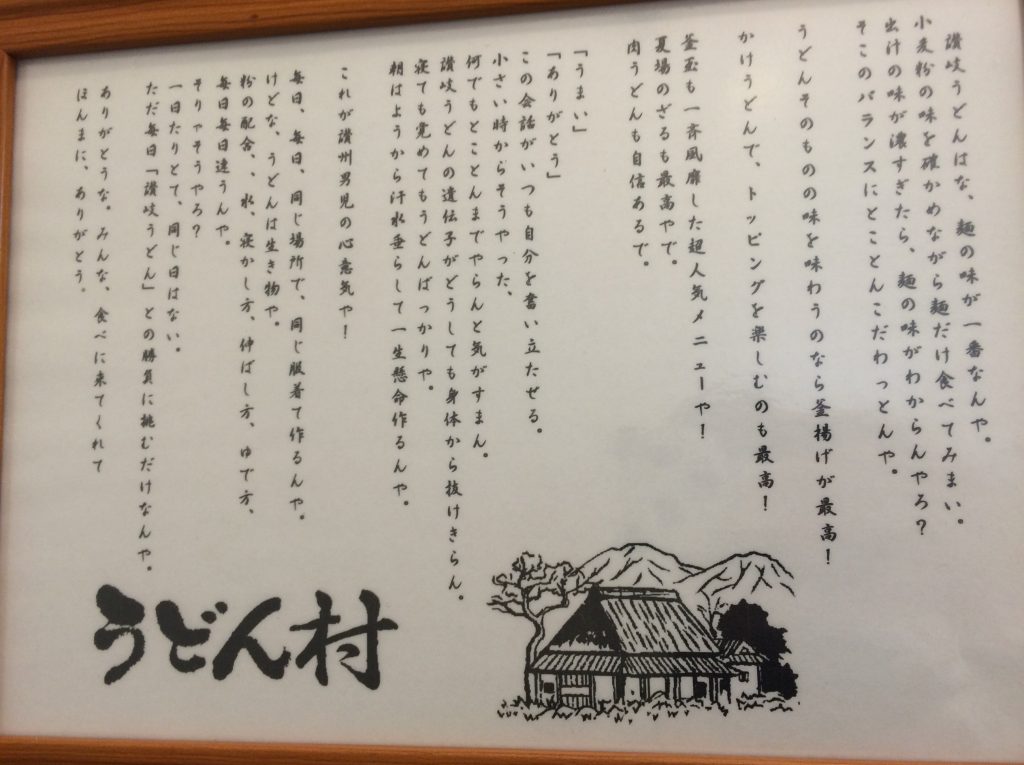 讃岐うどんはな、麺の味が一番なんや。
小麦粉の味を確かめながら麺だけ食べてみまい。
出汁の味が濃すぎたら、麺の味がわからんやろ？
そこのバランスにとことんこだわっとんや。
うどんそのものの味を味わうのなら釜揚げが最高！
かけうどんで、トッピングを楽しむのも最高！
釜玉も一斉風靡した超人気メニューや！
夏場のざるも最高やで。
肉うどんも自信あるで。
「うまい」
「ありがとう」
この会話がいつも自分を奮い立たせる。
小さい時からそうやった、
何でもとことんまでやらんと気がすまん。
讃岐うどんの遺伝子がどうしても身体から抜けきらん。
寝ても覚めてもうどんばっかりや。
朝はようから汗水垂らして一生懸命作るんや。
これが讃州男児の心意気や！
毎日、毎日、同じ場所で、同じ服着て作るんや。
けどな、うどんは生き物や。
粉の配合、水、寝かし方、伸ばし方、ゆで方、
毎日毎日違うんや。
そりゃそうやろ？
一日たりとて、同じ日はない。
ただ毎日「讃岐うどん」との勝負に挑むだけなんや。
ありがとうな。みんな、食べに来てくれて
ほんまに、ありがとう。
うどん村